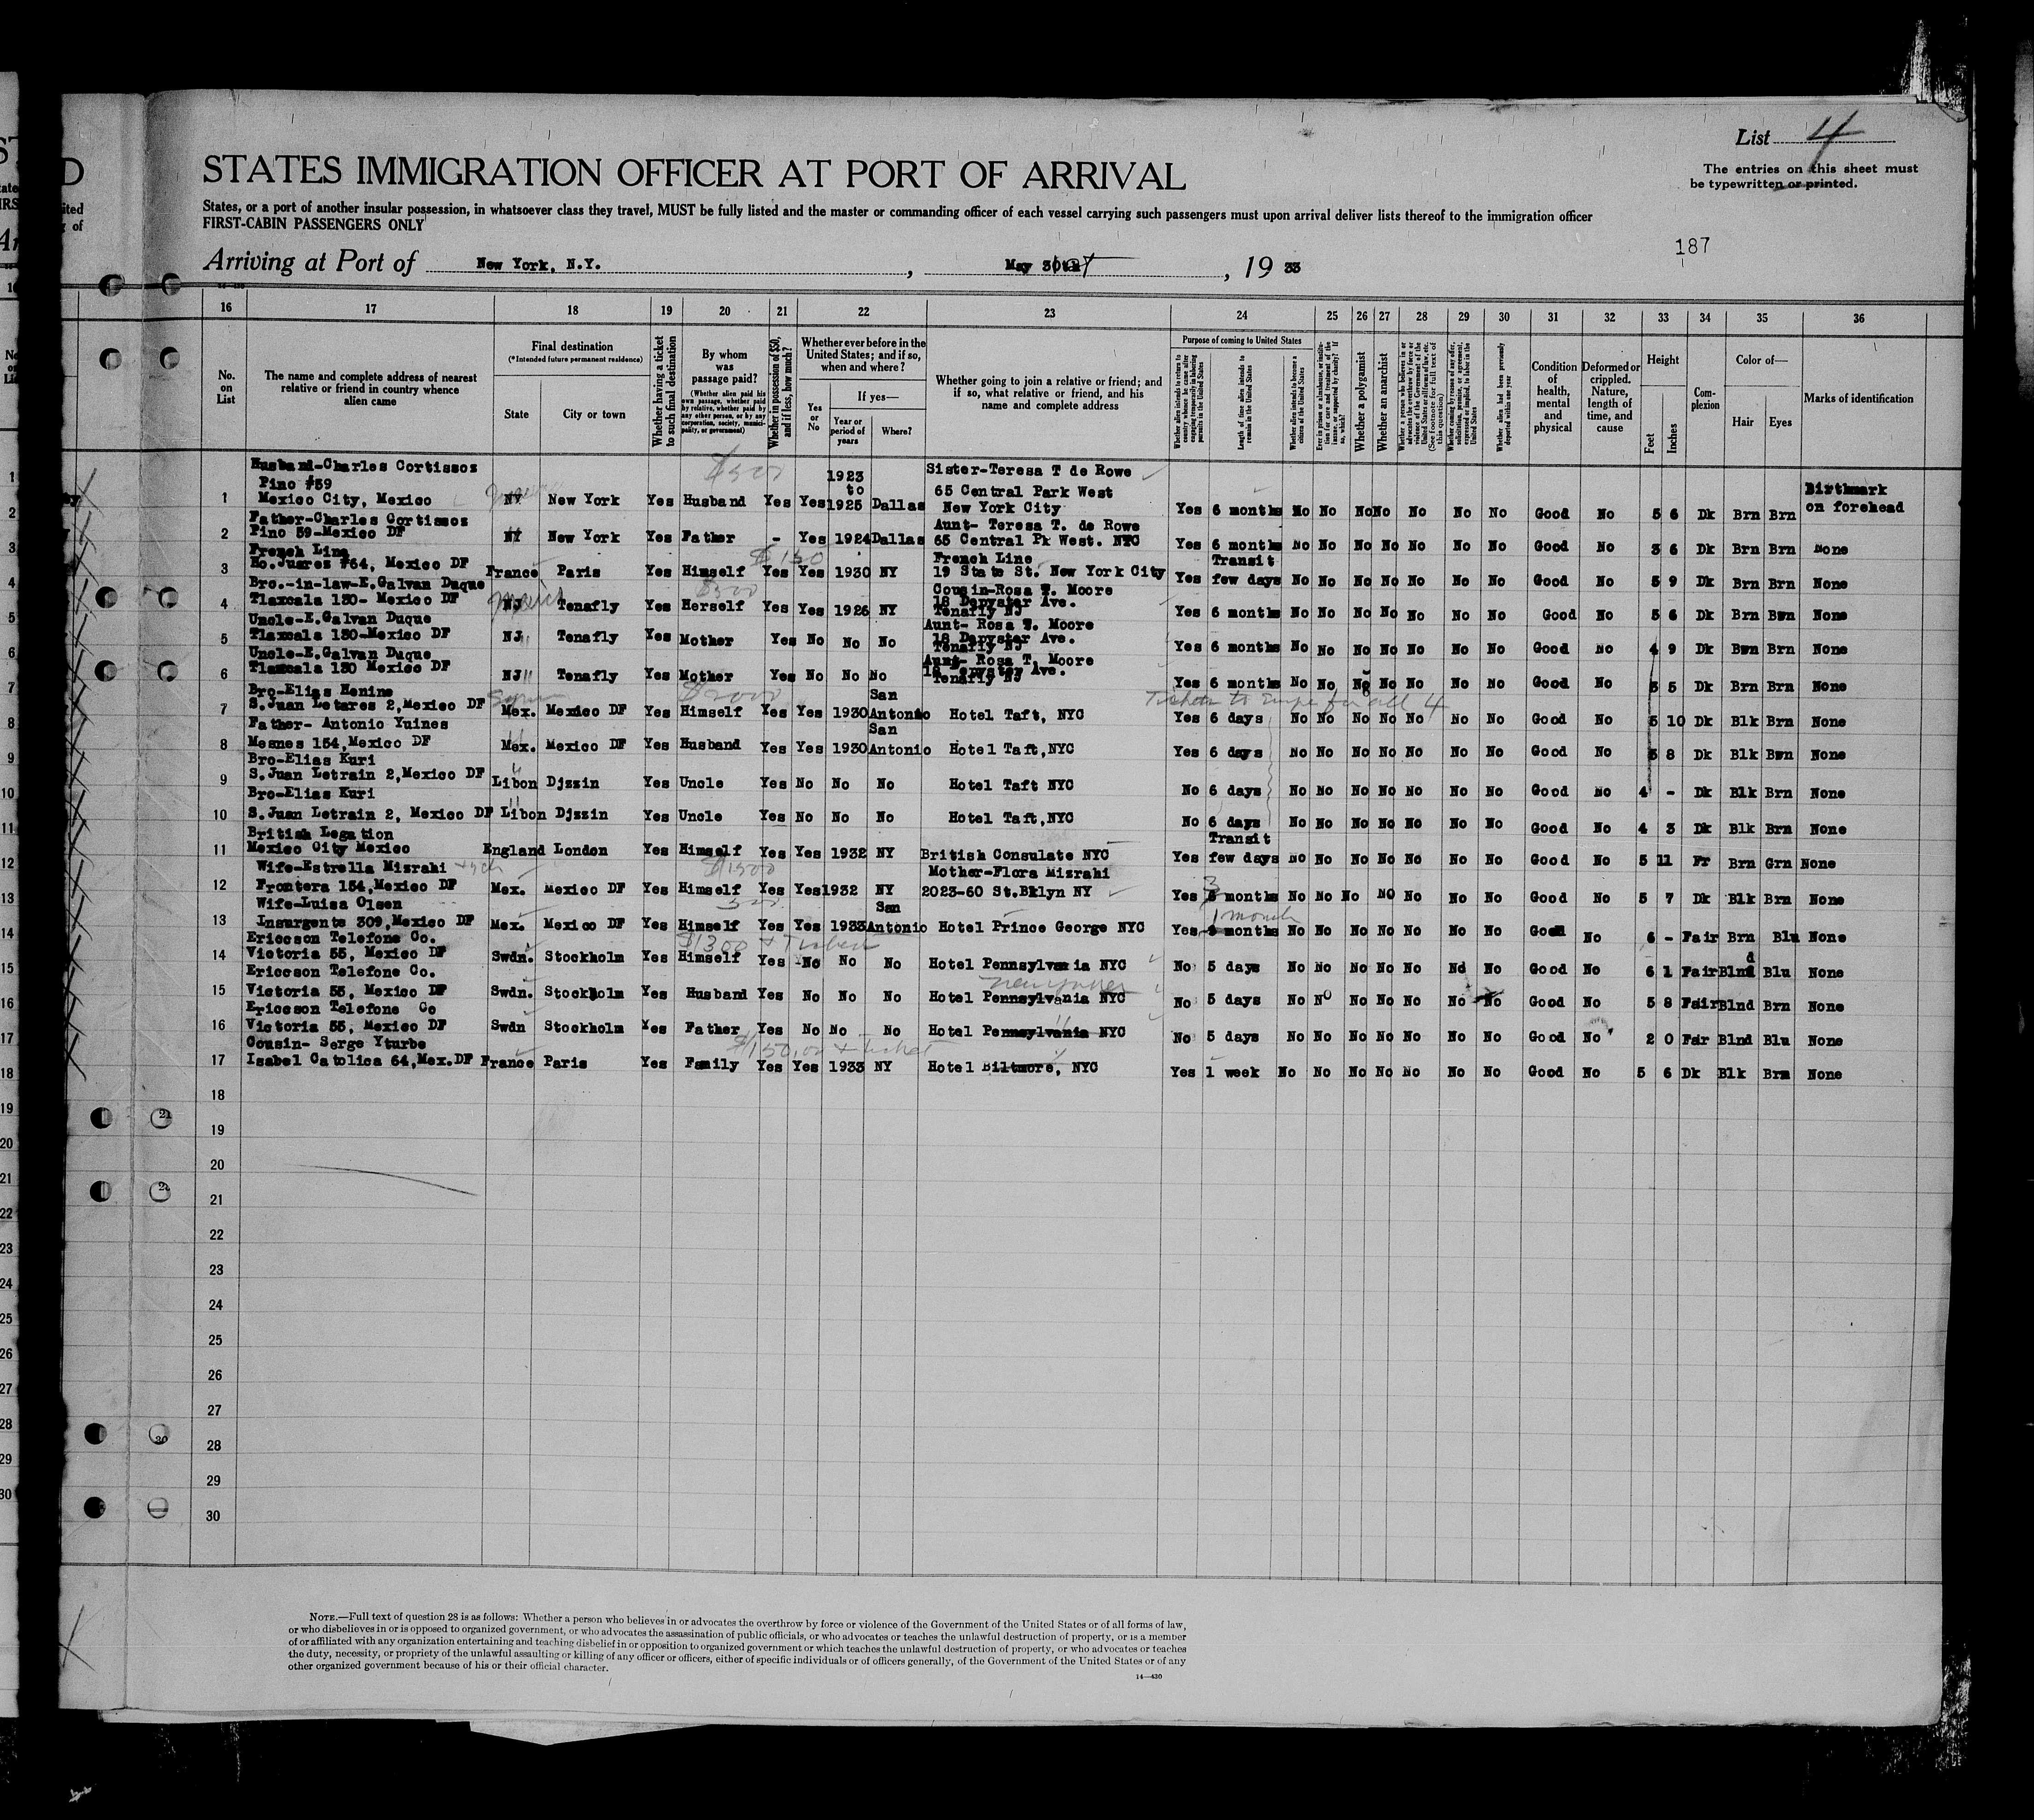 List 4
The entries on this sheet must
be typewritten or printed.
STATES IMMIGRATION OFFICER AT PORT OF ARRIVAL
States, or a port of another insular possession, in whatsoever class they travel, MUST be fully listed and the master or commanding officer of each vessel carrying such passengers must upon arrival deliver lists thereof to the immigration officer
FIRST-CABIN PASSENGERS ONLY
187
Arriving at Port of New York, N.Y. , May , 19 33
16 17 18 19 20 21 22 23 24 25 26 27 28 29 30 31 32 33 34 35 36
No. on List
The name and complete address of nearest relative or friend in country whence alien came
Final destination
(*Intended future permanent residence)
State
City or town
Whether having a ticket to such final destination
By whom was passage paid?
(Whether alien paid his own passage, whether paid by relative, whether paid by any other person, or by any corporation, society, municipality, or government)
Whether in possession of $50, and if less, how much?
Whether ever before in the United States; and if so, when and where?
Yes or No
If yes—
Year or period of years
Where?
Whether going to join a relative or friend; and if so, what relative or friend, and his name and complete address
Purpose of coming to United States
Whether alien intends to return to country whence he came after engaging temporarily in laboring pursuits in the United States
Length of time alien intends to remain in the United States
Whether alien intends to become a citizen of the United States
Whether a polygamist
Whether an anarchist
Whether alien had been previously deported within one year
Condition of health, mental and physical
Deformed or crippled. Nature, length of time, and cause
Height
Feet
Inches
Complexion
Color of—
Hair
Eyes
Marks of identification
$500
1 Husband-Charles Cortissos Pino #59 Mexico City, Mexico NY New York Yes Husband Yes Yes 1923 to 1925 Dallas Sister-Teresa T de Rowe 65 Central Park West New York City Yes 6 months No No No No No No No Good No 5 6 Dk Brn Brn Birthmark on forehead
2 Father-Charles Cortissos Pino 59-Mexico DF NY New York Yes Father - Yes 1924 Dallas Aunt- Teresa T. de Rowe 65 Central Pk West. NYC Yes 6 months No No No No No No No Good No 3 6 Dk Brn Brn None
$150
3 French Line Ho.Juares #64, Mexico DF France Paris Yes Himself Yes Yes 1930 NY French Line 19 State St. New York City Yes Transit few days No No No No No No No Good No 5 9 Dk Brn Brn None
$500
4 Bro.-in-law-E.Galvan Duque Tlaxcala 130- Mexico DF NJ Tenafly Yes Herself Yes Yes 1926 NY Cousin-Rosa T. Moore 18 Depyster Ave. Tenafly NJ Yes 6 months No No No No No No No Good No 5 6 Dk Brn Bwn None
5 Uncle-E.Galvan Duque Tlaxcala 130-Mexico DF NJ Tenafly Yes Mother Yes No No No Aunt- Rosa T. Moore 18 Depyster Ave. Tenafly NJ Yes 6 months No No No No No No No Good No 4 9 Dk Bwn Brn None
6 Uncle-E.Galvan Duque Tlaxcala 130 Mexico DF NJ Tenafly Yes Mother Yes No No No Aunt- Rosa T. Moore Tenafly NJ Yes 6 months No No No No No No No Good No 5 5 Dk Brn Brn None
$2000
7 Bro-Elias Henine S.Juan Letares 2,Mexico DF Mex. Mexico DF Yes Himself Yes Yes 1930 San Antonio Hotel Taft, NYC Yes 6 days No No No No No No No Good No 5 10 Dk Blk Brn None
8 Father- Antonio Yuines Mesnes 154,Mexico DF Mex. Mexico DF Yes Husband Yes Yes 1930 San Antonio Hotel Taft,NYC Yes 6 days No No No No No No No Good No 5 8 Dk Blk Bwn None
9 Bro-Elias Kuri S.Juan Letrain 2,Mexico DF Libon Djzzin Yes Uncle Yes No No No Hotel Taft NYC No 6 days No No No No No No No Good No 4 - Dk Blk Brn None
10 Bro-Elias Kuri S.Juan Letrain 2, Mexico DF Libon Djzzin Yes Uncle Yes No No No Hotel Taft,NYC No 6 days No No No No No No No Good No 4 3 Dk Blk Brn None
11 British Legation Mexico City Mexico England London Yes Himself Yes Yes 1932 NY British Consulate NYC Yes Transit few days No No No No No No No Good No 5 11 Fr Brn Grn None
$1500
12 Wife-Estrella Mizrahi Frontera 154,Mexico DF Mex. Mexico DF Yes Himself Yes Yes 1932 NY Mother-Flora Mizrahi 2023-60 St.Bklyn NY Yes 3 months No No No No No No No Good No 5 7 Dk Blk Brn None
13 Wife-Luisa Olsen Insurgente 309,Mexico DF Mex. Mexico DF Yes Himself Yes Yes 1933 San Antonio Hotel Prince George NYC Yes 1 month months No No No No No No No Good No 6 - Fair Brn Blu None
$1300 + Ticket
14 Ericcson Telefone Co. Victoria 55, Mexico DF Swdn. Stockholm Yes Himself Yes No No No Hotel Pennsylvania NYC No 5 days No No No No No No No Good No 6 1 Fair Blnd Blu None
15 Ericcson Telefone Co. Victoria 55, Mexico DF Swdn. Stockholm Yes Husband Yes No No No Hotel Pennsylvania NYC New Yorker No 5 days No No No No No No No Good No 5 8 Fair Blnd Brn None
16 Ericcson Telefone Co Victoria 55, Mexico DF Swdn Stockholm Yes Father Yes No No No Hotel Pennsylvania NYC No 5 days No No No No No No No Good No 2 0 Fair Blnd Blu None
$150.00 + ticket
17 Cousin- Serge Yturbe Isabel Catolica 64,Mex.DF France Paris Yes Family Yes Yes 1933 NY Hotel Biltmore, NYC Yes 1 week No No No No No No No Good No 5 6 Dk Blk Brn None
18
19
20
21
22
23
24
25
26
27
28
29
30
NOTE.—Full text of question 28 is as follows: Whether a person who believes in or advocates the overthrow by force or violence of the Government of the United States or of all forms of law,
or who disbelieves in or is opposed to organized government, or who advocates the assassination of public officials, or who advocates or teaches the unlawful destruction of property, or is a member
of or affiliated with any organization entertaining and teaching disbelief in or opposition to organized government or which teaches the unlawful destruction of property, or who advocates or teaches
the duty, necessity, or propriety of the unlawful assaulting or killing of any officer or officers, either of specific individuals or of officers generally, of the Government of the United States or of any
other organized government because of his or their official character.
14—430